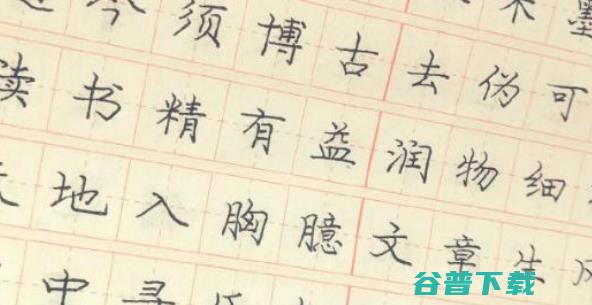 今须博古去伪可
读书精有益润物细
地入胸臆文章生风
中寻
谷普下载